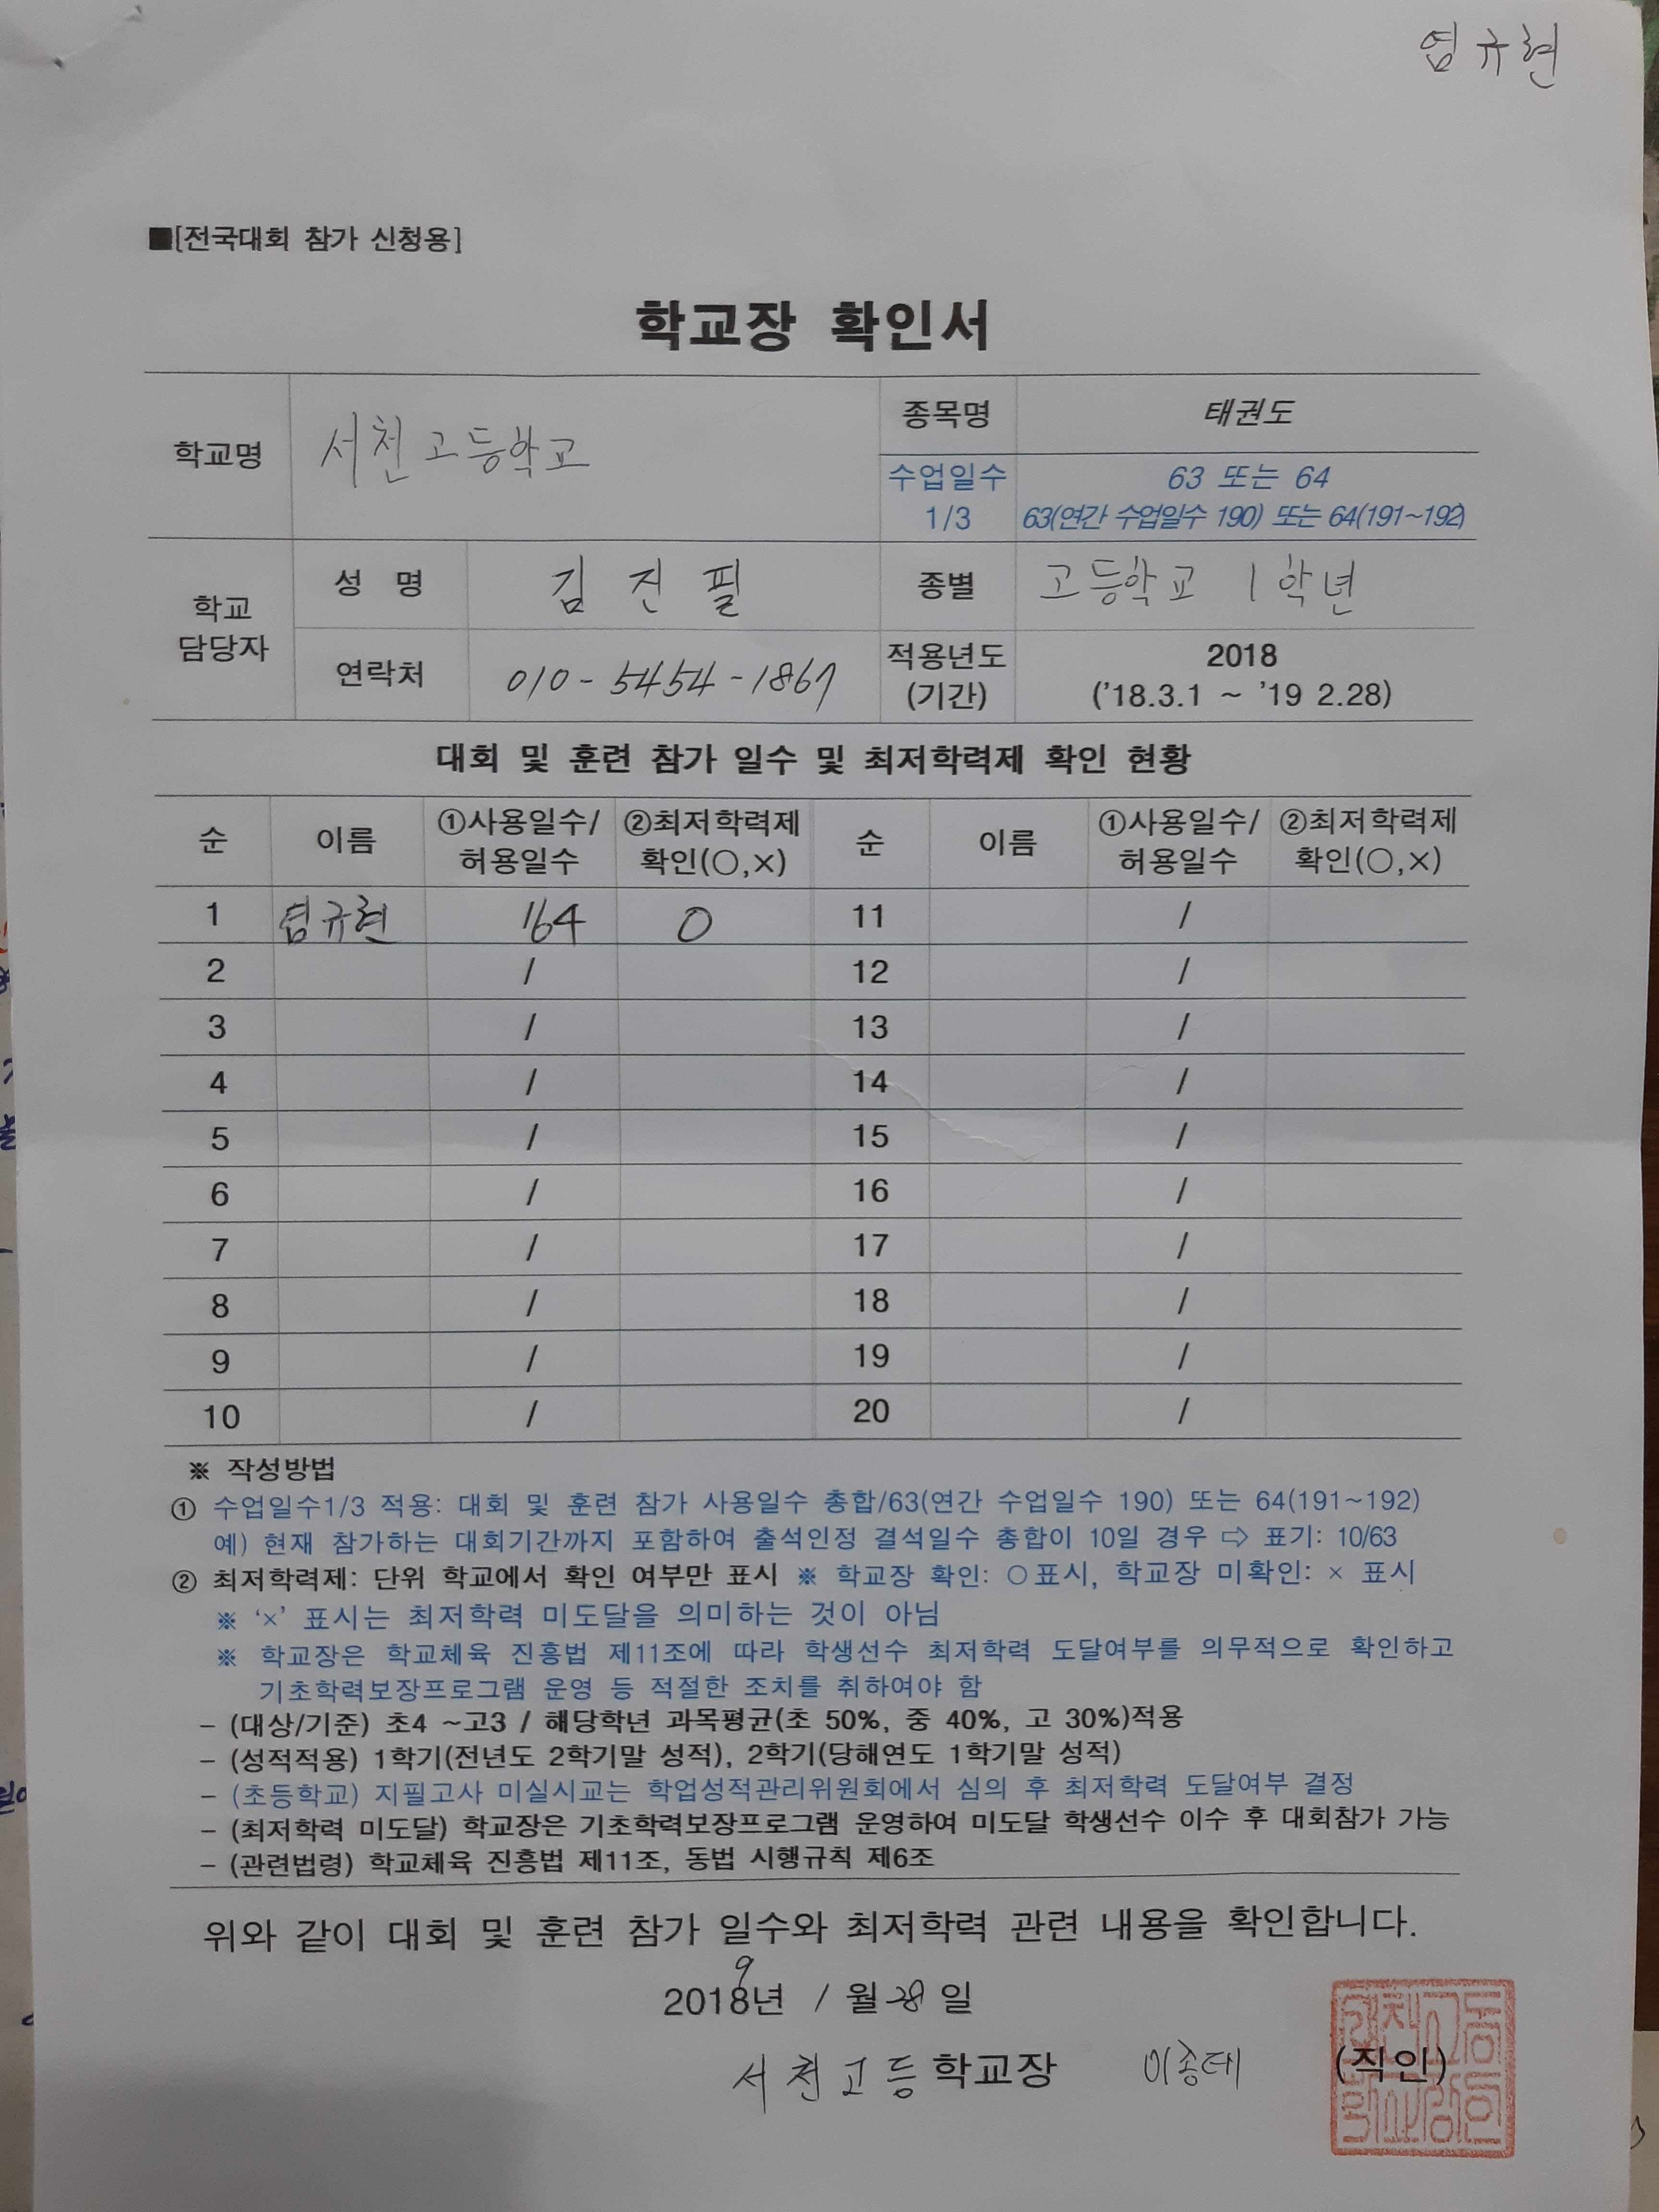 엄규현
■[전국대회 참가 신청용]
학교장 확인서
학교명 서천고등학교 종목명 태권도
수업일수 1/3 63 또는 64
63(연간 수업일수 190) 또는 64(191~192)
학교 담당자 성 명 김진필 종별 고등학교 1학년
연락처 010-5454-1867 적용년도 (기간) 2018
('18.3.1 ~ '19 2.28)
대회 및 훈련 참가 일수 및 최저학력제 확인 현황
순 이름 ①사용일수/허용일수 ②최저학력제 확인(○,×) 순 이름 ①사용일수/허용일수 ②최저학력제 확인(○,×)
1 엄규현 /64 0 11 /
2 / 12 /
3 / 13 /
4 / 14 /
5 / 15 /
6 / 16 /
7 / 17 /
8 / 18 /
9 / 19 /
10 / 20 /
※ 작성방법
① 수업일수1/3 적용: 대회 및 훈련 참가 사용일수 총합/63(연간 수업일수 190) 또는 64(191~192)
예) 현재 참가하는 대회기간까지 포함하여 출석인정 결석일수 총합이 10일 경우 ⇨ 표기: 10/63
② 최저학력제: 단위 학교에서 확인 여부만 표시 ※ 학교장 확인: ○표시, 학교장 미확인: × 표시
※ '×' 표시는 최저학력 미도달을 의미하는 것이 아님
※ 학교장은 학교체육 진흥법 제11조에 따라 학생선수 최저학력 도달여부를 의무적으로 확인하고
기초학력보장프로그램 운영 등 적절한 조치를 취하여야 함
- (대상/기준) 초4 ~고3 / 해당학년 과목평균(초 50%, 중 40%, 고 30%)적용
- (성적적용) 1학기(전년도 2학기말 성적), 2학기(당해연도 1학기말 성적)
- (초등학교) 지필고사 미실시교는 학업성적관리위원회에서 심의 후 최저학력 도달여부 결정
- (최저학력 미도달) 학교장은 기초학력보장프로그램 운영하여 미도달 학생선수 이수 후 대회참가 가능
- (관련법령) 학교체육 진흥법 제11조, 동법 시행규칙 제6조
위와 같이 대회 및 훈련 참가 일수와 최저학력 관련 내용을 확인합니다.
9
2018년 1월 28일
서천고등 학교장 이종태 (직인)